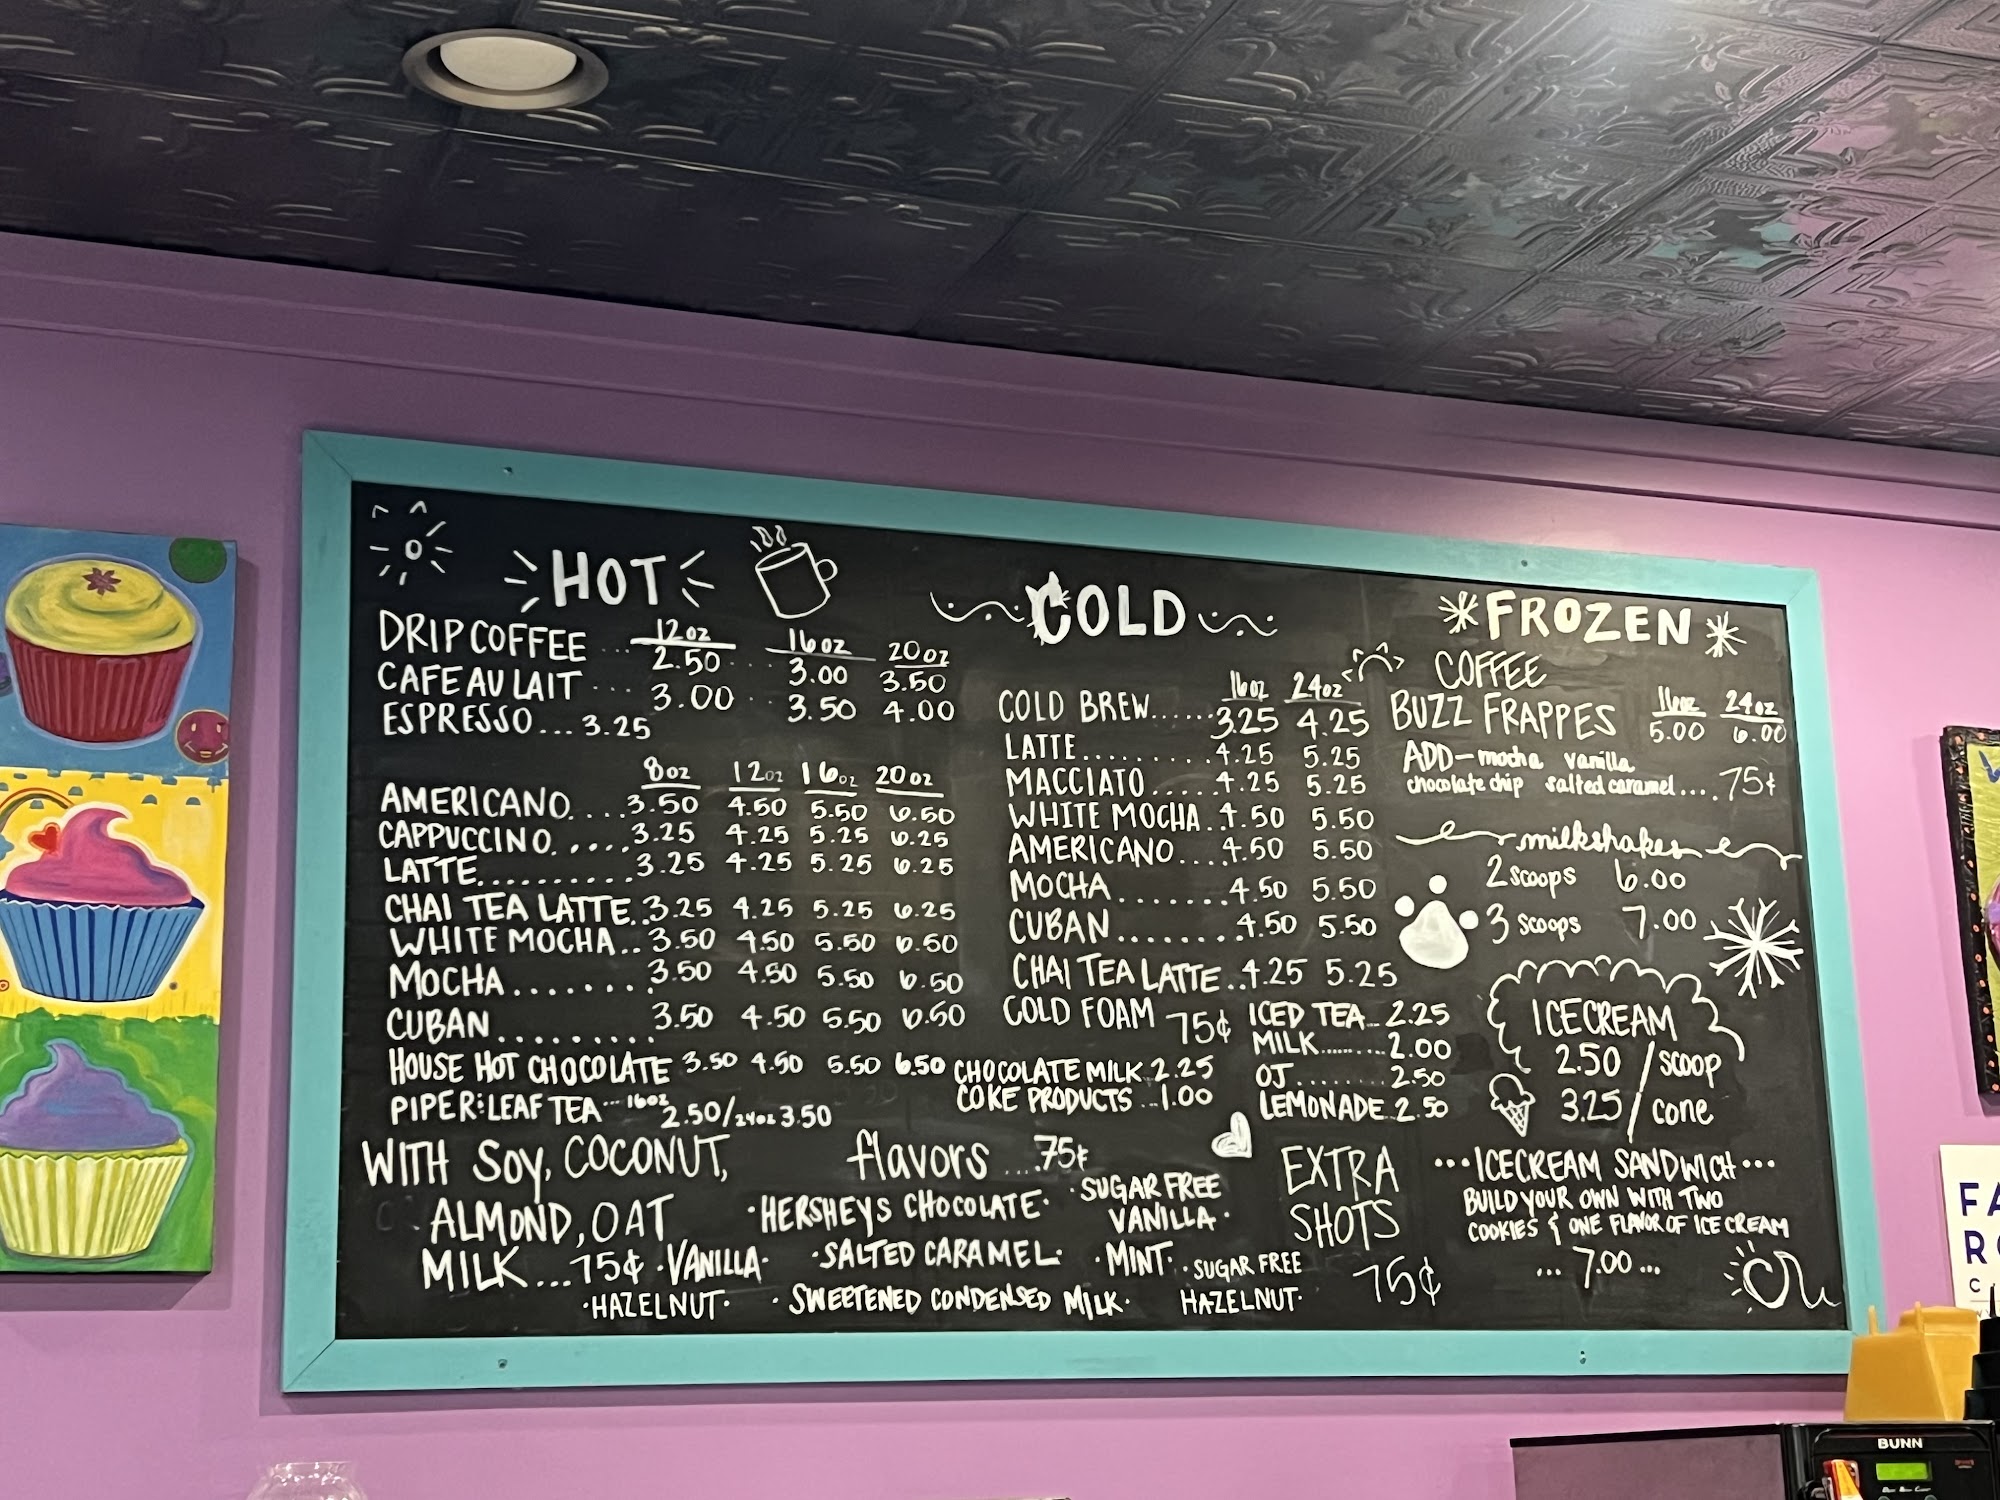 HOT
12oz 16oz 20oz
DRIP COFFEE ... 2.50 ... 3.00 3.50
CAFE AU LAIT ... 3.00 .. 3.50 4.00
ESPRESSO... 3.25
8oz 12oz 16oz 20oz
AMERICANO....3.50 4.50 5.50 6.50
CAPPUCCINO.....3.25 4.25 5.25 6.25
LATTE..........3.25 4.25 5.25 6.25
CHAI TEA LATTE..3.25 4.25 5.25 6.25
WHITE MOCHA..3.50 4.50 5.50 6.50
MOCHA........3.50 4.50 5.50 6.50
CUBAN.........3.50 4.50 5.50 6.50
HOUSE HOT CHOCOLATE 3.50 4.50 5.50 6.50
PIPER & LEAF TEA ... 16oz 2.50/24oz 3.50
WITH SOY, COCONUT,
ALMOND, OAT
MILK...75¢
flavors ....75¢
·HERSHEYS CHOCOLATE· ·SUGAR FREE
VANILLA·
·VANILLA· ·SALTED CARAMEL· ·MINT· ·SUGAR FREE
HAZELNUT·
·HAZELNUT· ·SWEETENED CONDENSED MILK·
COLD
16oz 24oz
COLD BREW......3.25 4.25
LATTE..........4.25 5.25
MACCIATO.....4.25 5.25
WHITE MOCHA..4.50 5.50
AMERICANO....4.50 5.50
MOCHA.......4.50 5.50
CUBAN........4.50 5.50
CHAI TEA LATTE..4.25 5.25
COLD FOAM 75¢
CHOCOLATE MILK 2.25
COKE PRODUCTS ..1.00
ICED TEA... 2.25
MILK.........2.00
OJ........2.50
LEMONADE..2.50
EXTRA
SHOTS
75¢
FROZEN
COFFEE
BUZZ FRAPPES
16oz 24oz
5.00 6.00
ADD-mocha vanilla
chocolate chip salted caramel....75¢
milkshakes
2 scoops 6.00
3 scoops 7.00
ICECREAM
2.50 /scoop
3.25/ cone
...ICECREAM SANDWICH...
BUILD YOUR OWN WITH TWO
COOKIES & ONE FLAVOR OF ICE CREAM
... 7.00 ...
BUNN